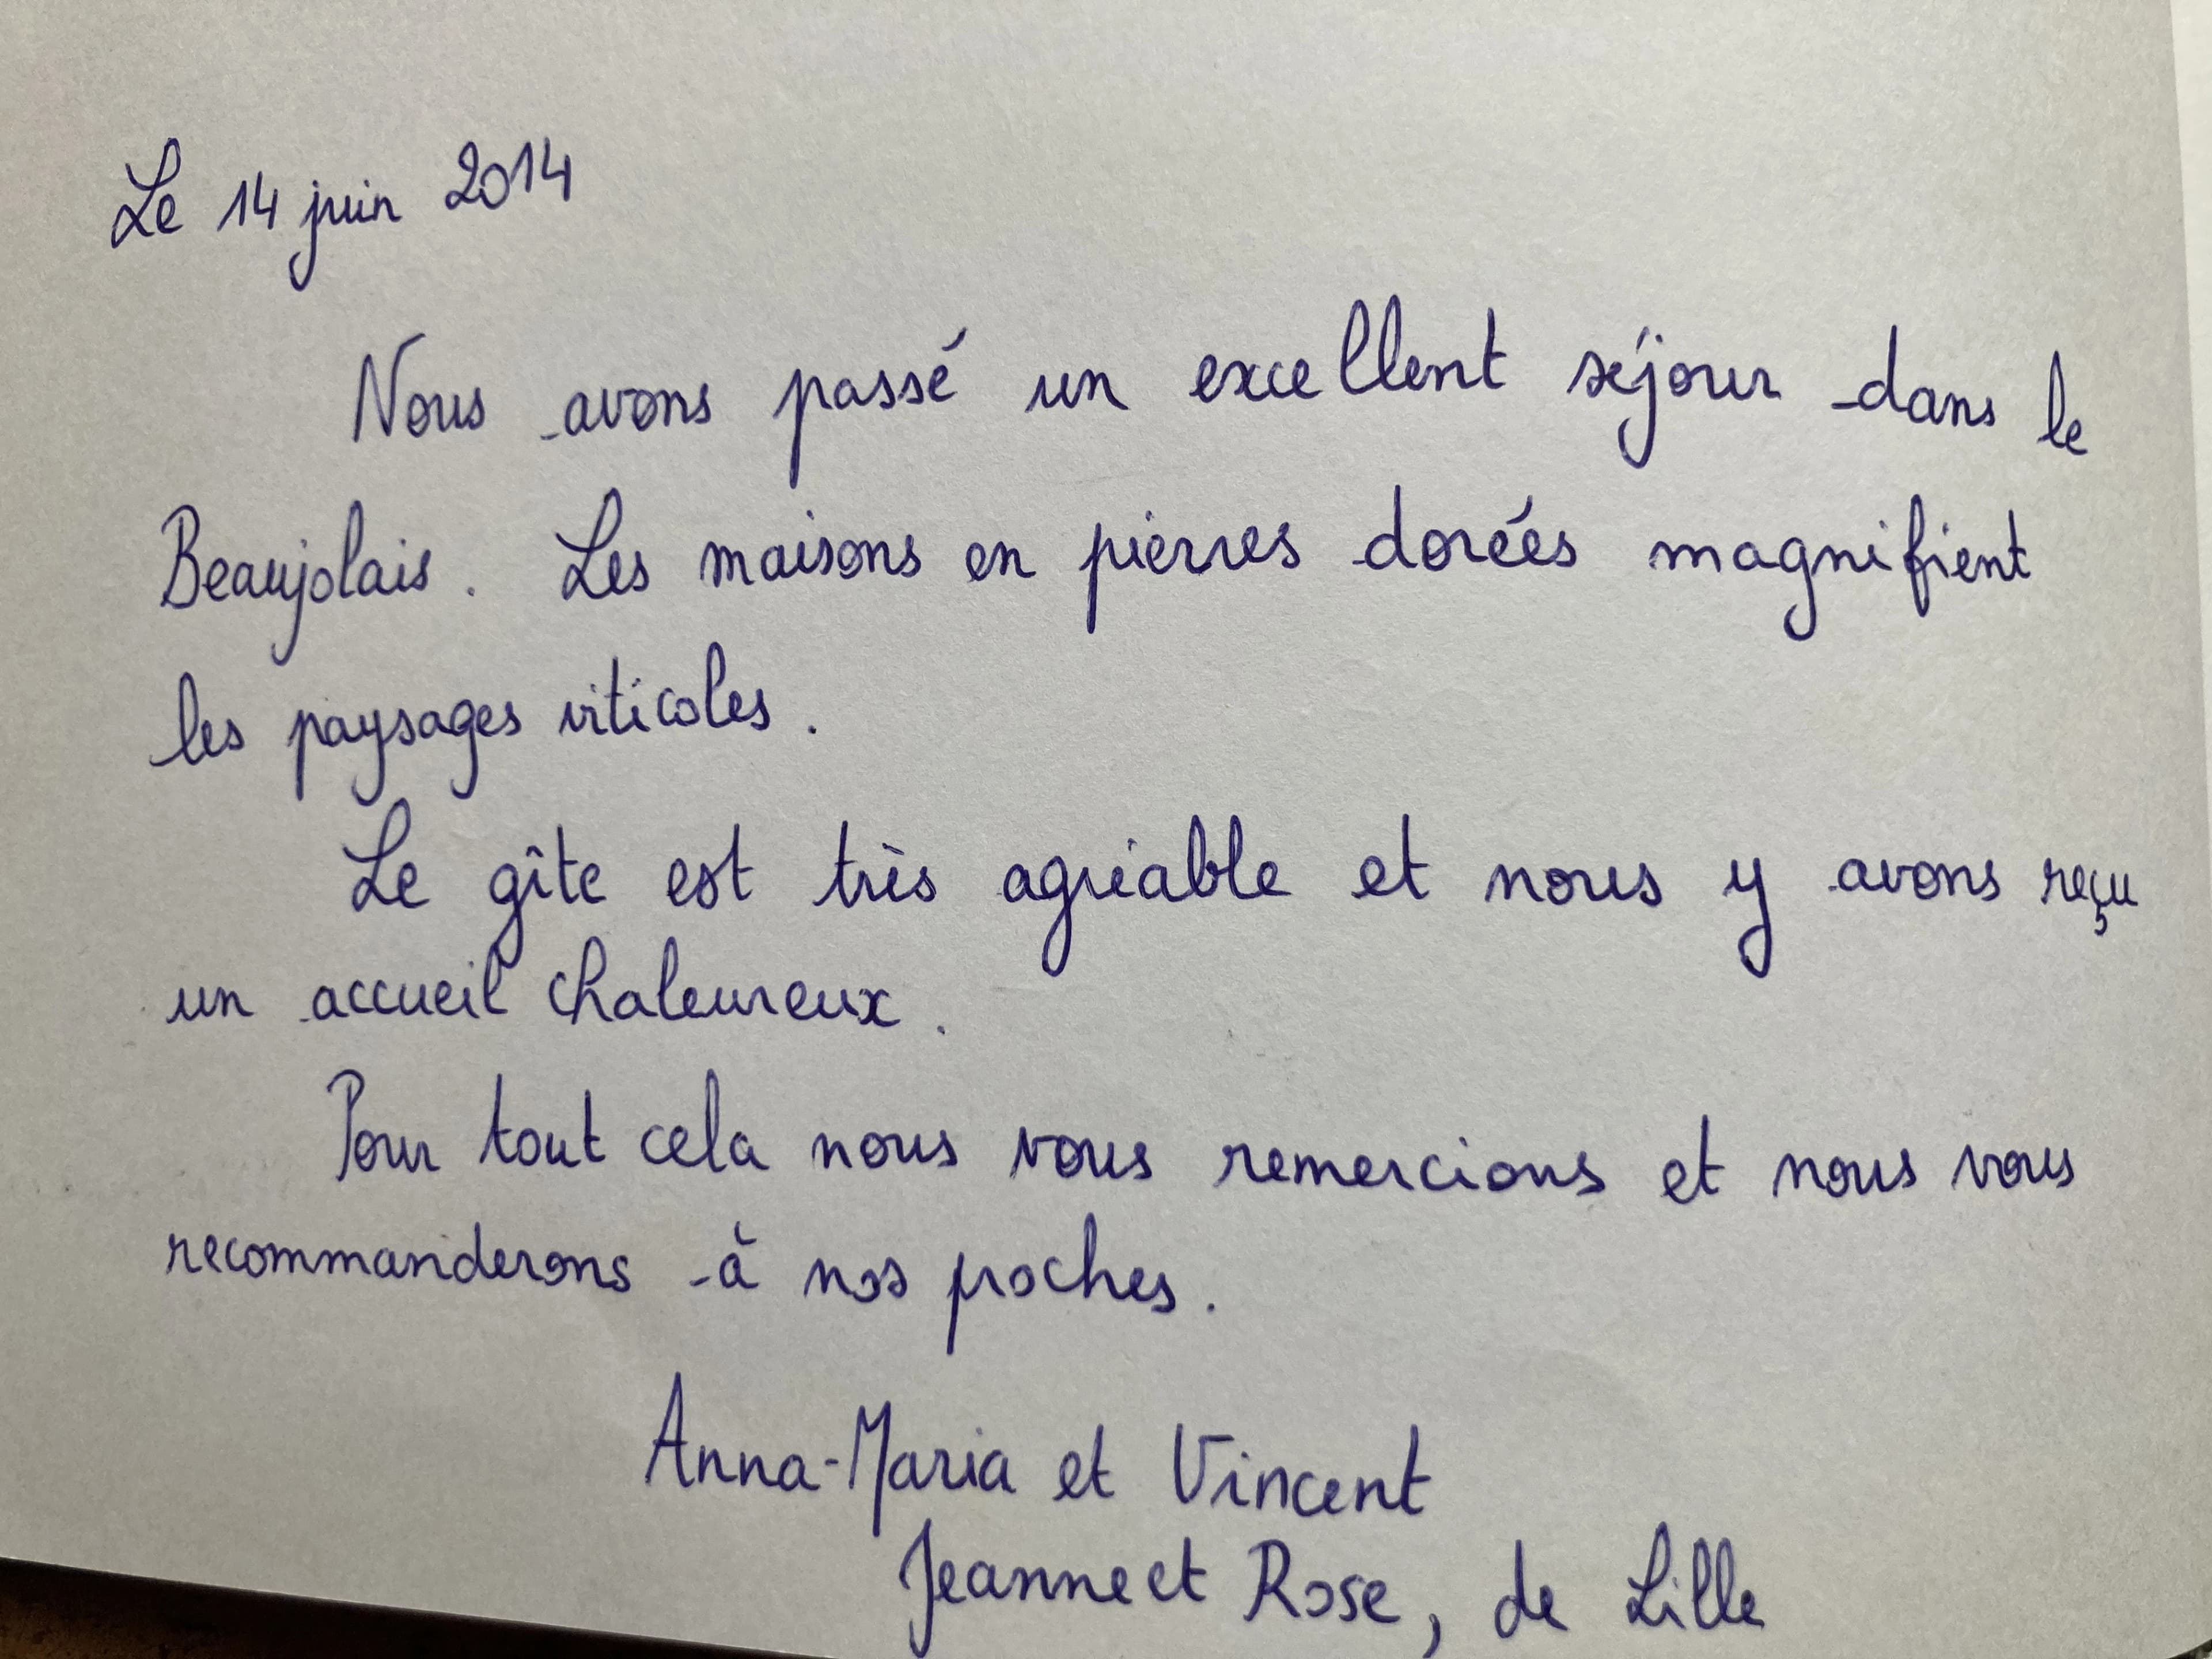 Le 14 juin 2014
Nous avons passé un excellent séjour dans le
Beaujolais. Les maisons en pierres dorées magnifient
les paysages viticoles.
Le gîte est très agréable et nous y avons reçu
un accueil chaleureux.
Pour tout cela nous vous remercions et nous vous
recommanderons à nos proches.
Anna-Maria et Vincent
Jeanne et Rose, de Lille